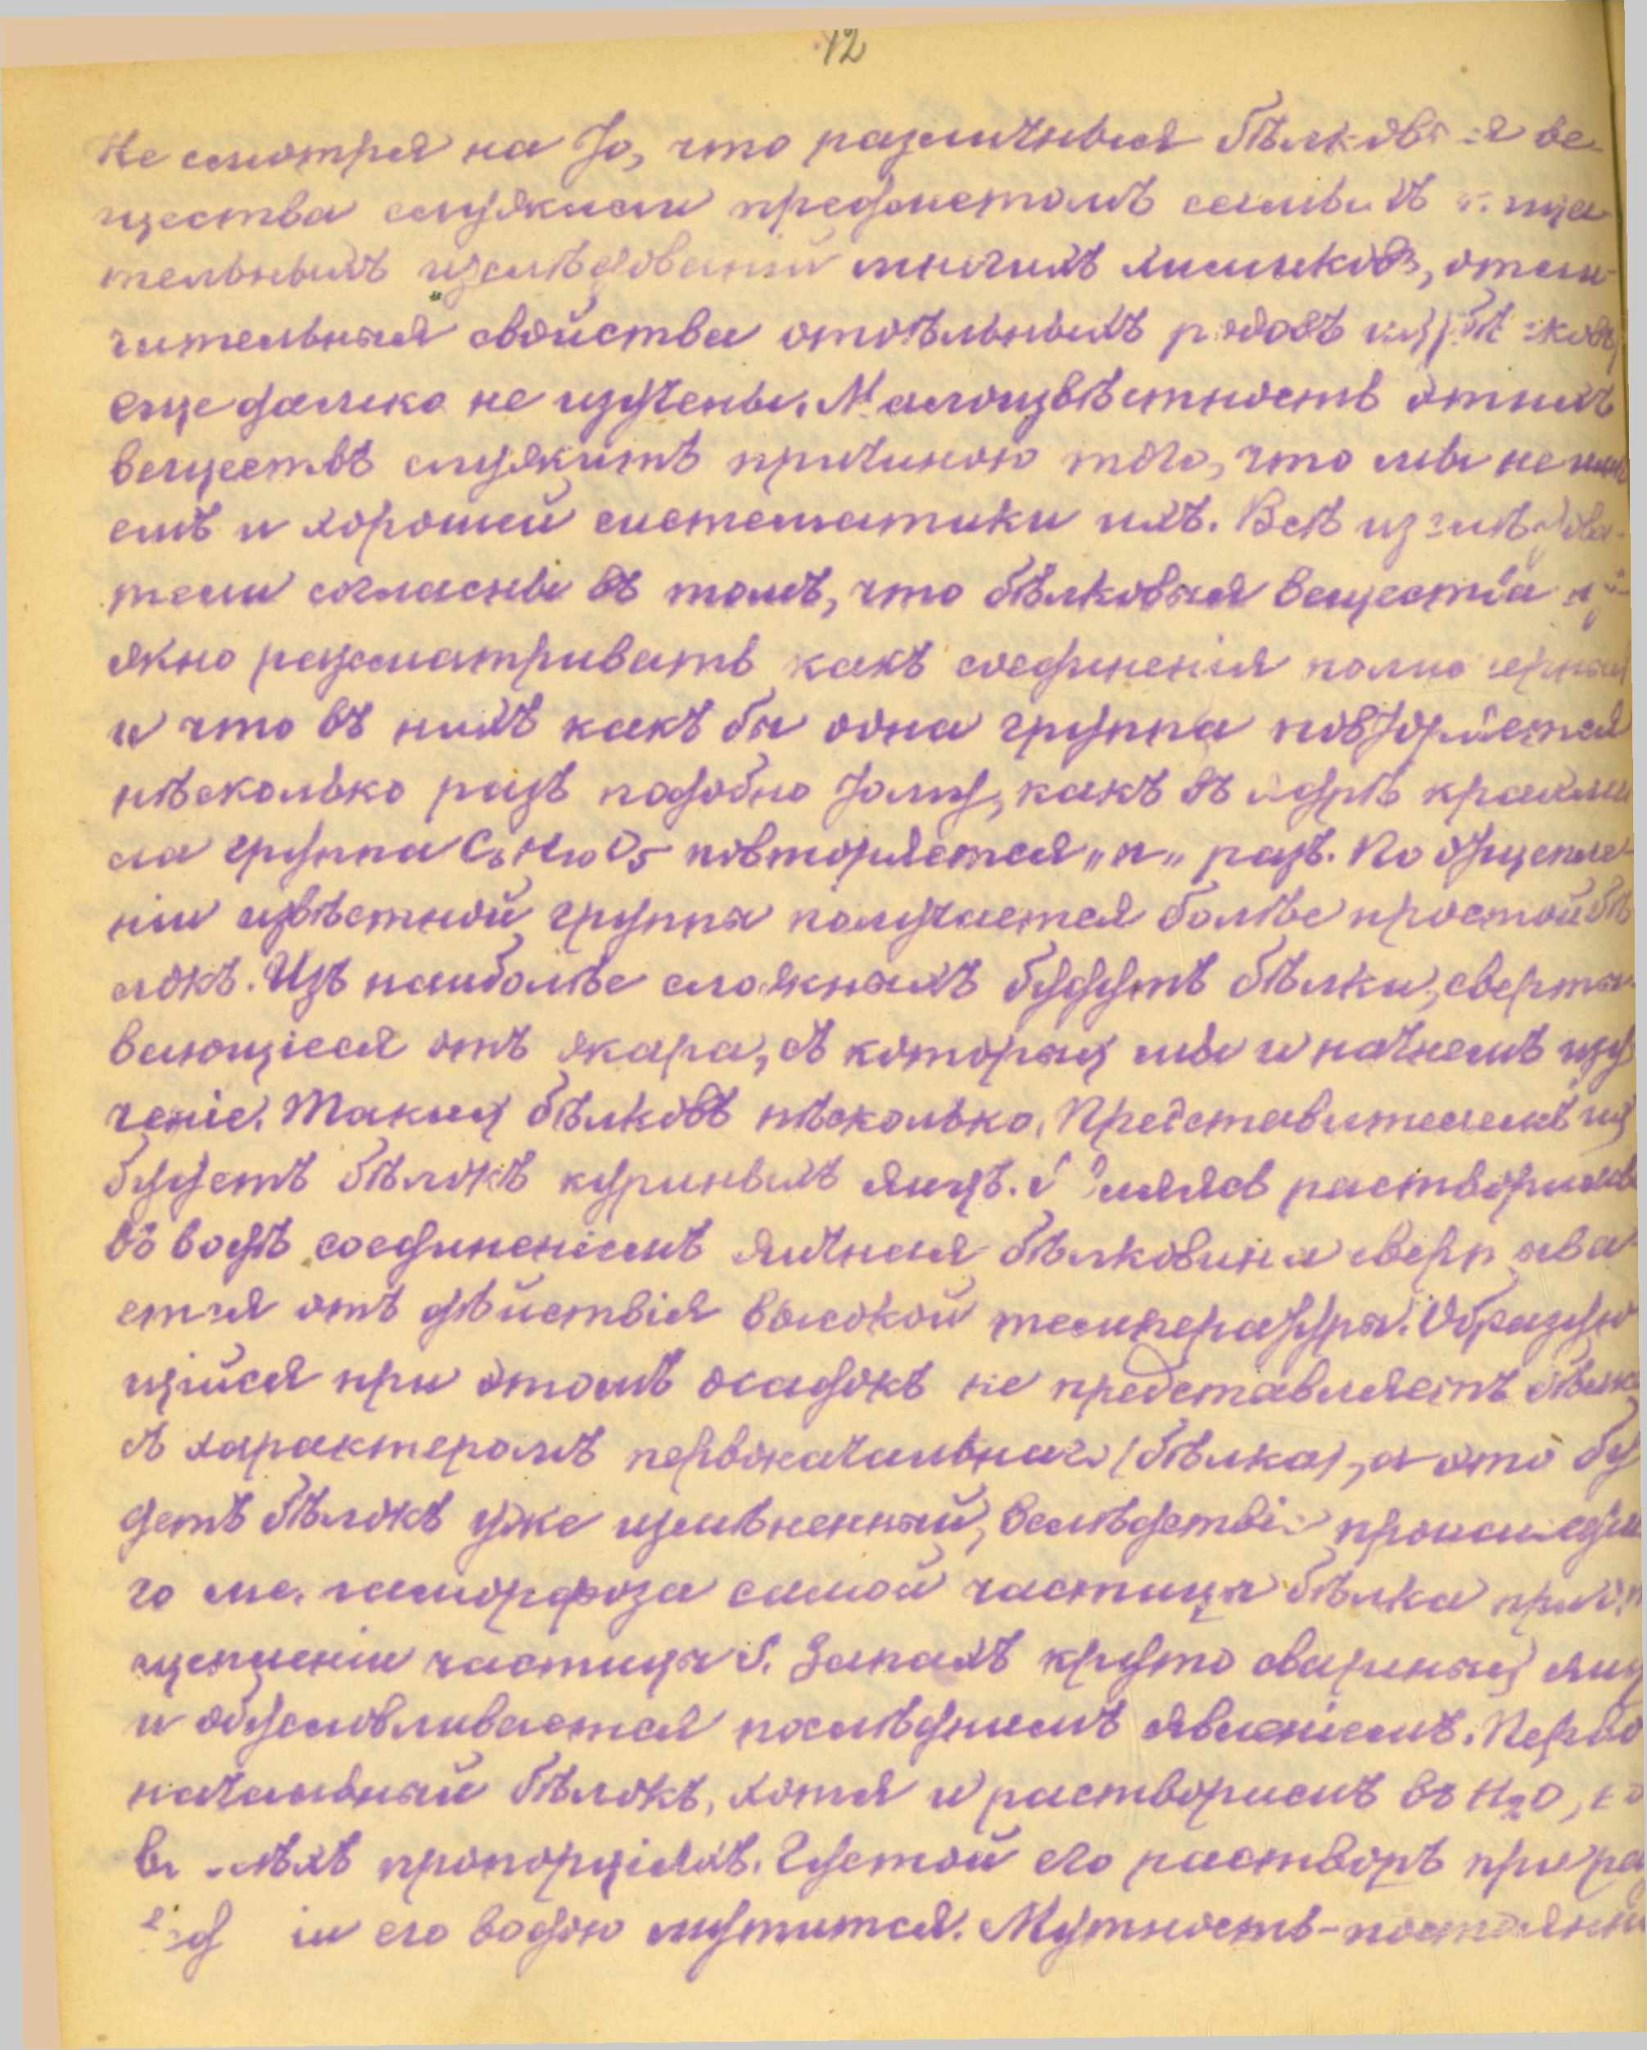 12
Не смотря на то, что различныя бѣлковыя ве-
щества служили предметомъ самыхъ тща-
тельныхъ изслѣдованій многихъ химиковъ, отли-
чительныя свойства отдѣльныхъ родовъ
еще далеко не изучены. Малоизвѣстность этихъ
веществъ служитъ причиною того, что мы не имѣ
емъ и хорошей систематики ихъ. Всѣ изслѣдова-
тели согласны въ томъ, что бѣлковыя вещества ну-
жно разсматривать какъ соединенія полимерныя
и что въ нихъ какъ бы одна группа повторяется
нѣсколько разъ подобно тому, какъ въ ядрѣ крахма
ла группа C6H10O5 повторяется „n„ разъ. По отщепле-
ніи извѣстной группы получается болѣе простой бѣ
локъ. Изъ наиболѣе сложныхъ будутъ бѣлки, сверты-
вающіеся отъ жара, съ которых мы и начнемъ изу
ченіе. Таких бѣлковъ нѣсколько. Представителемъ их
будетъ бѣлокъ куриныхъ яицъ. Являясь растворимымъ
въ водѣ соединеніемъ яичная бѣлковина сверты­ва-
ется отъ дѣйствія высокой температуры. Образую
щійся при этомъ осадокъ не представляетъ бѣлк
съ характеромъ первоначальнаго (бѣлка), а это бу
детъ бѣлокъ уже измѣненный, вслѣдствіе происшедша
го метаморфоза самой частицы бѣлка при от
щепленіи частицы S. Запахъ круто сваренных яиц
и обусловливается послѣднимъ явленіемъ. Перво
начальный бѣлокъ, хотя и растворимъ въ H2O, но
во всѣхъ пропорціяхъ. Густой его растворъ при ра
его водою мутится. Мутность-постоянн